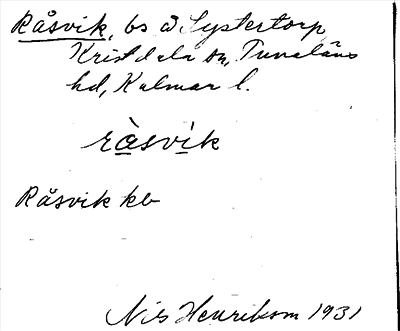 Råsvik, bs å Systertorp,
Kristdala sn, Tunaläns
hd, Kalmar l.
ràsvík
Råsvik kb
Nils Henrikson 1931